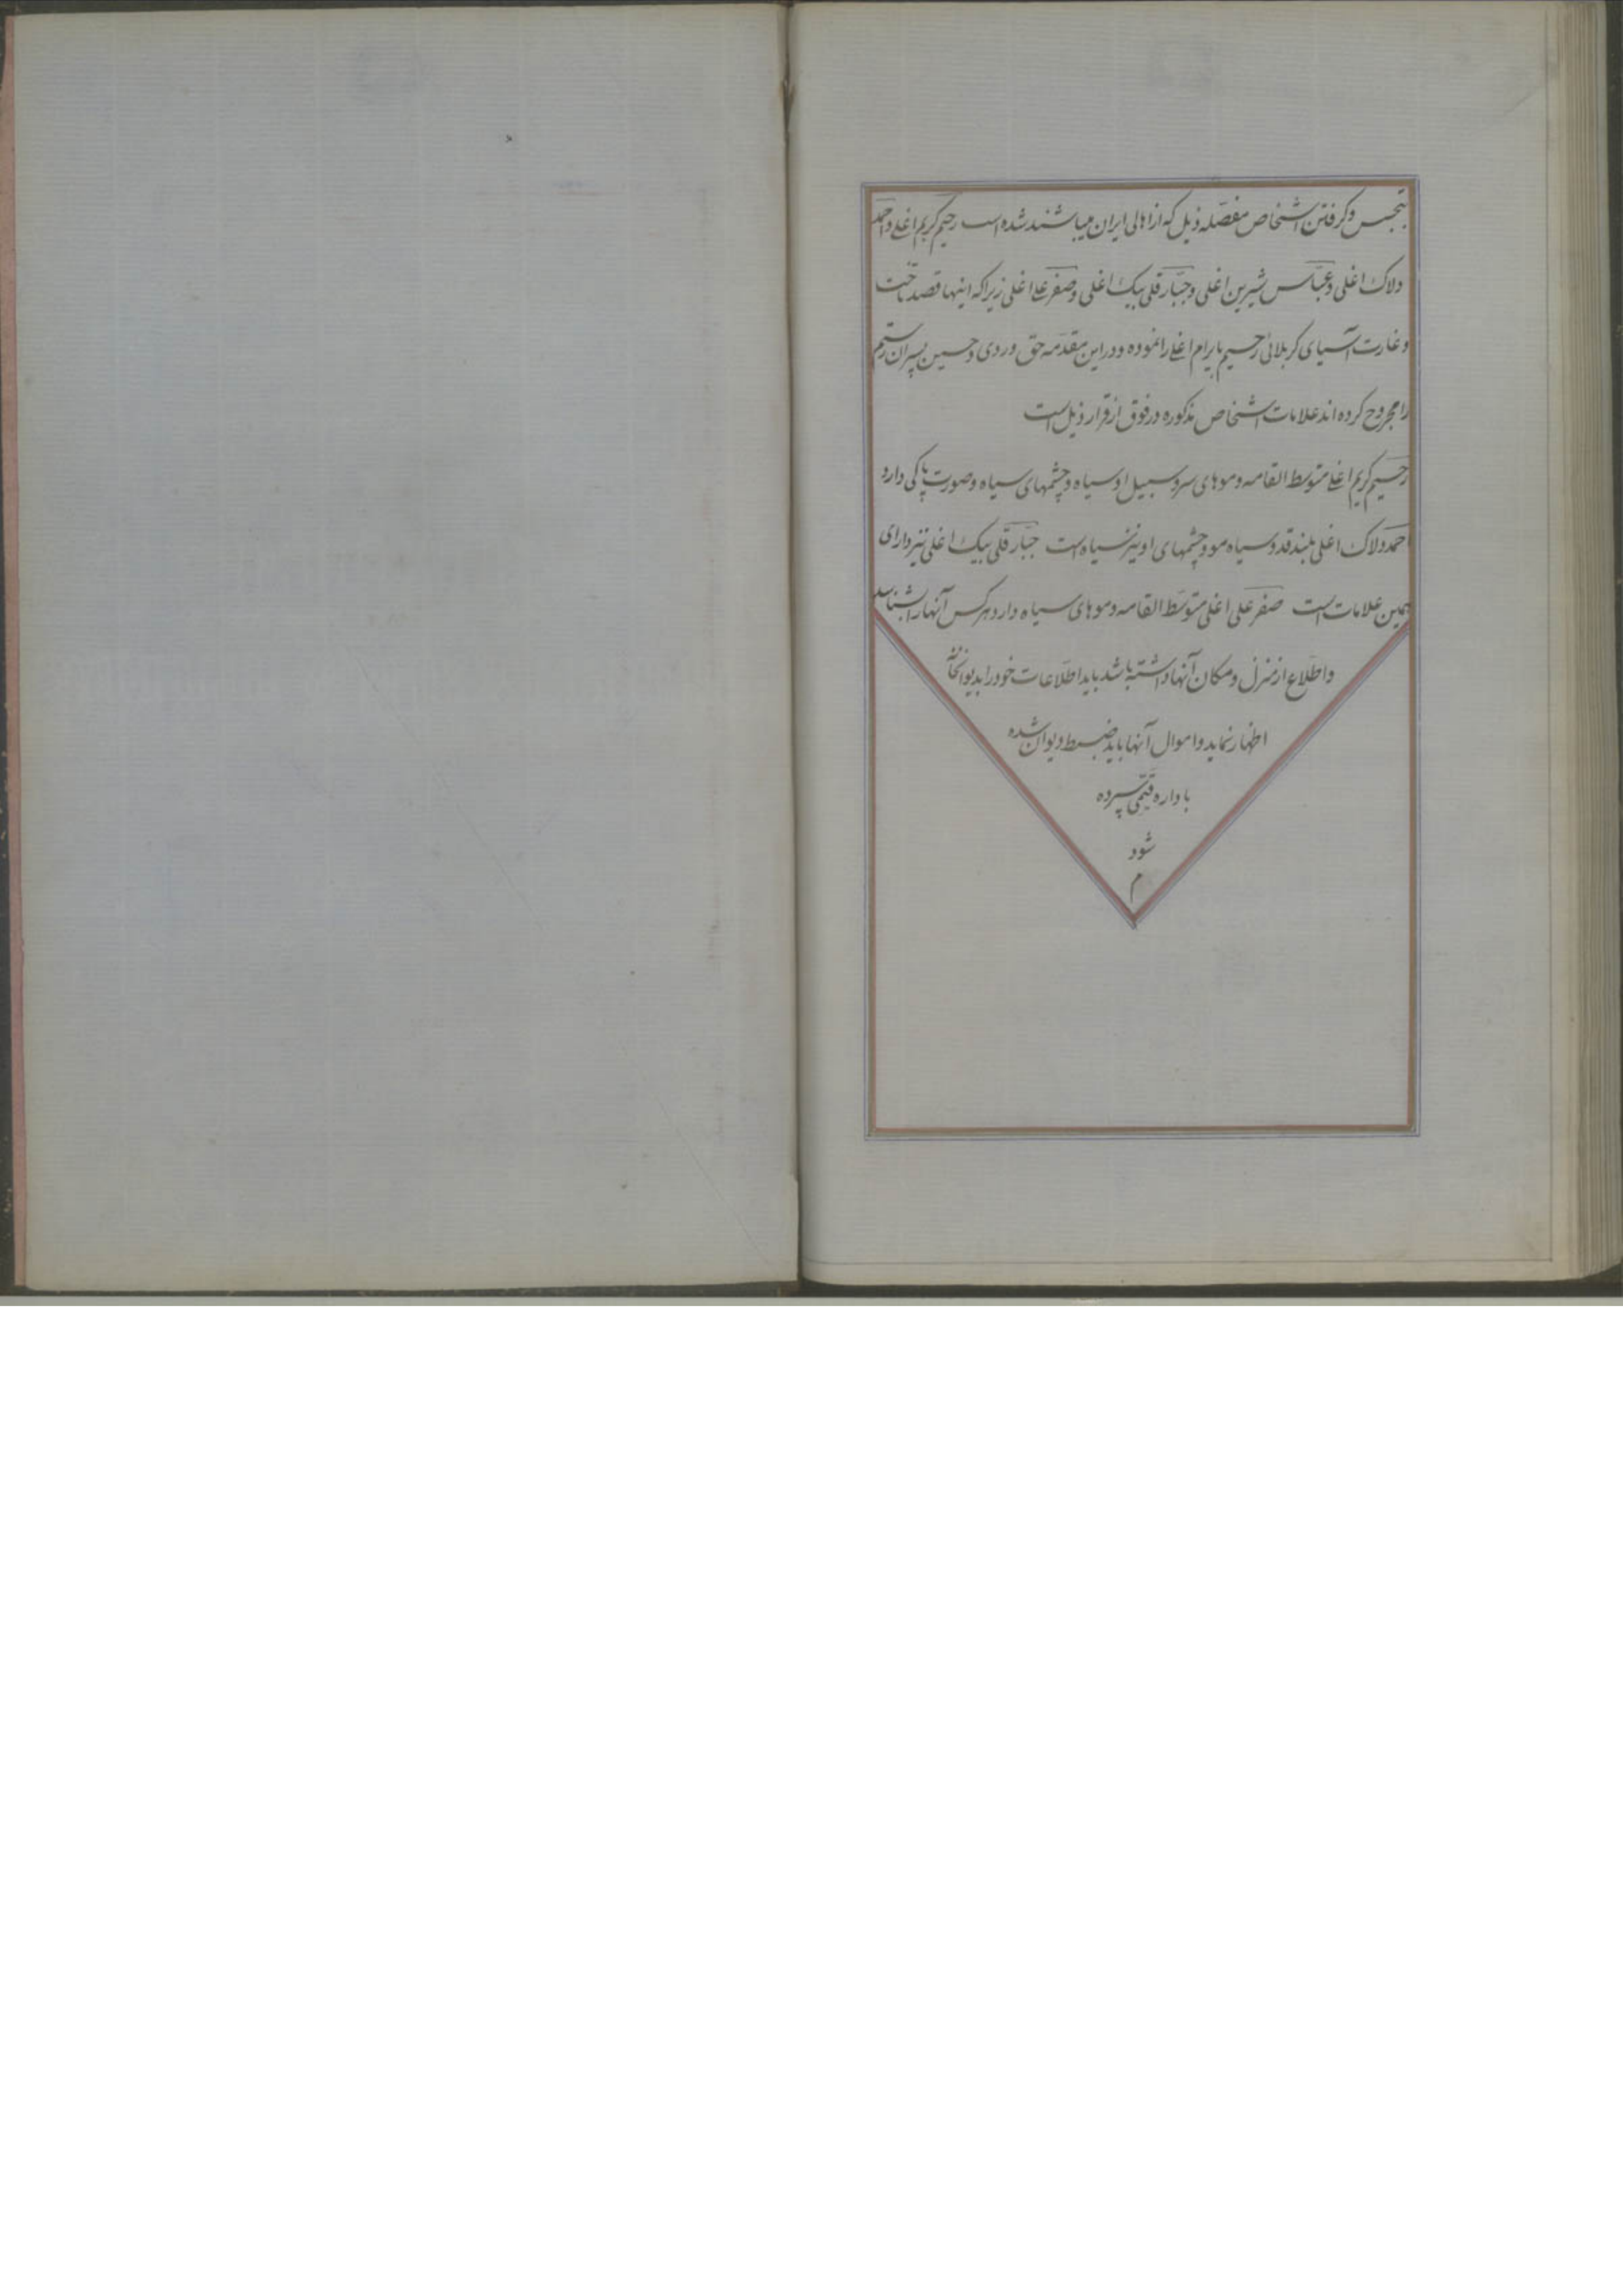 بتجسس و گرفتن اشخاص مفصّله ذیل که از اهالی ایران میباشند شده است رحیم کریم اغلی و احمد
دلاک اغلی و عبّاس شیرین اغلی و جبّار قلی بیک اغلی و صفر علی اغلی زیرا که اینها قصد تاخت
و غارت آسیای کربلائی رحیم بایرام اغلی را نموده و در این مقدّمه حق وردی و حسین پسران رستم
را مجروح کرده اند علامات اشخاص مذکوره در فوق از قرار ذیل است
رحیم کریم اغلی متوسط القامه و موهای سر و سبیل او سیاه و چشمهای سیاه و صورت پاکی دارد
احمد دلاک اغلی بلند قد و سیاه مو و چشمهای او نیز سیاه است جبّار قلی بیک اغلی نیز دارای
همین علامات است صفر علی اغلی متوسّط القامه و موهای سیاه دارد هرکس آنها را بشناسد
و اطّلاع از منزل و مکان آنها داشته باشد باید اطّلاعات خود را بدیوانخانه
اظهار نماید و اموال آنها باید ضبط دیوان شده
باداره قیّمی سپرده
شود
م